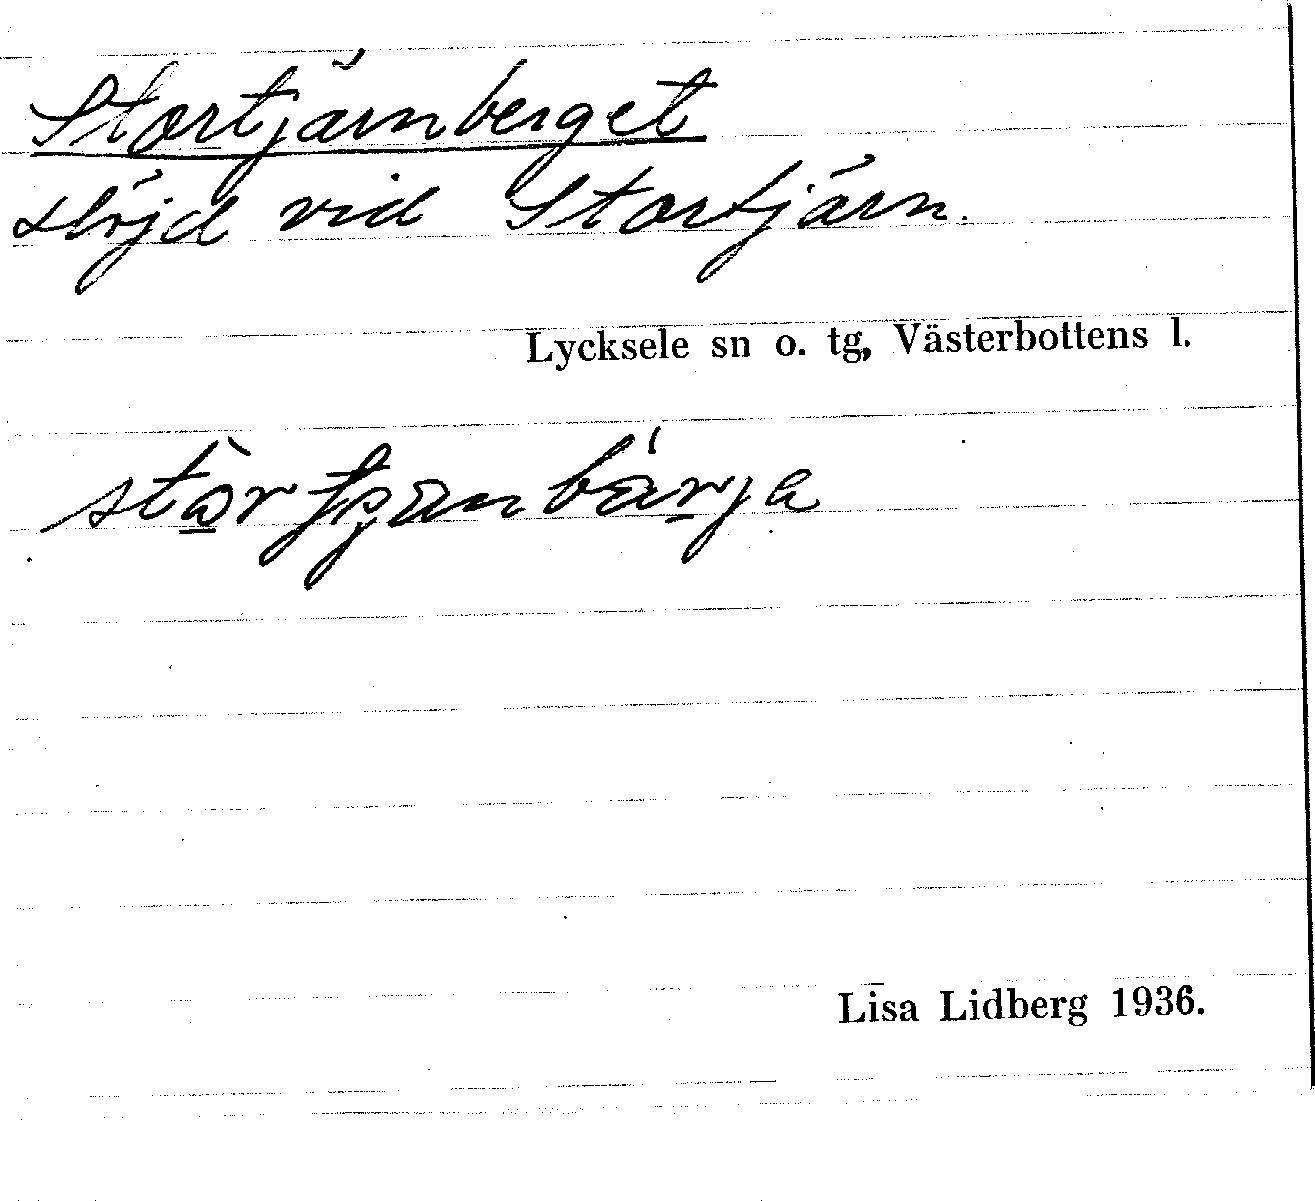 Stortjärnberget
slöjd vid Stortjärn.
Lycksele sn o. tg, Västerbottens l.
Lisa Lidberg 1936.